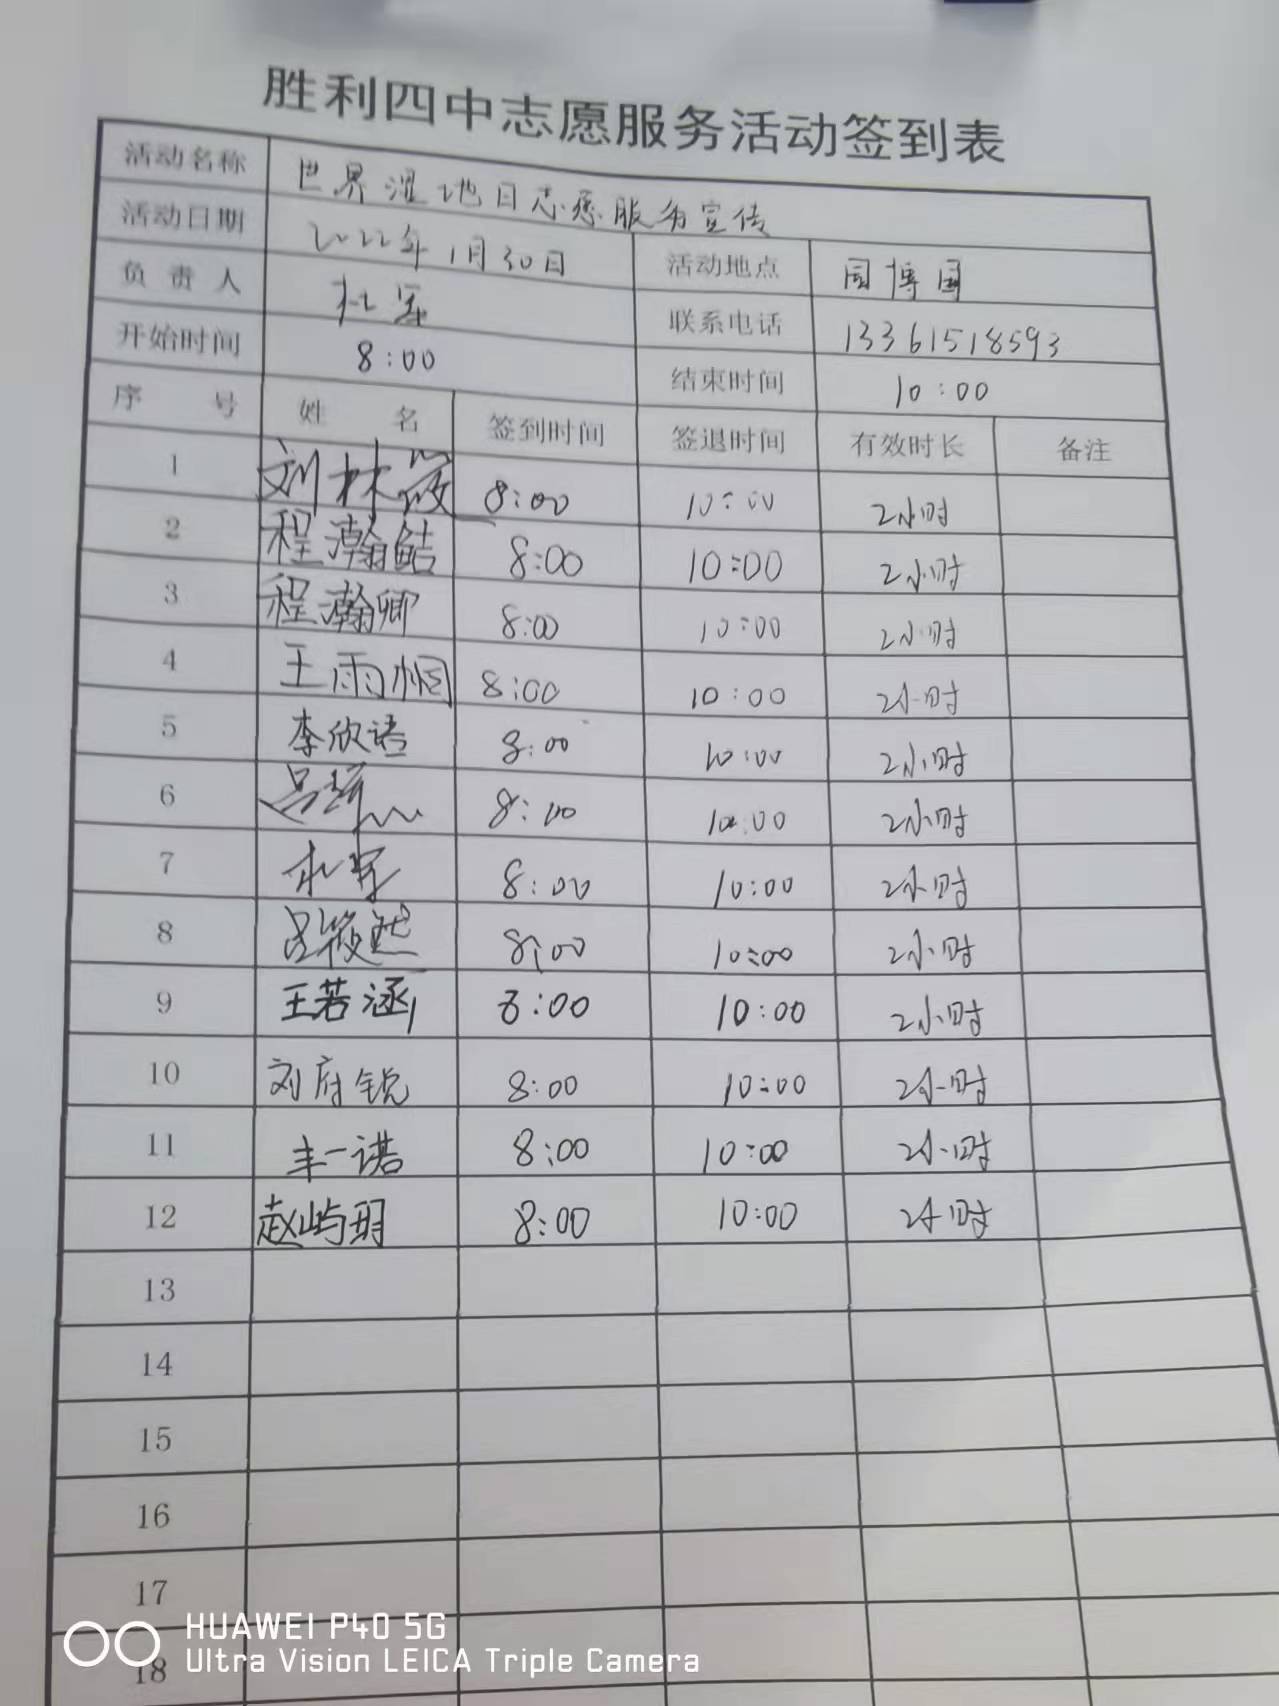 胜利四中志愿服务活动签到表
活动名称 世界湿地日志愿服务宣传
活动日期 2022年1月30日 活动地点 园博园
负责人 杜军 联系电话 13361518593
开始时间 8:00 结束时间 10:00
序号 姓名 签到时间 签退时间 有效时长 备注
1 刘林筱 8:00 10:00 2小时
2 程瀚鲒 8:00 10:00 2小时
3 程瀚卿 8:00 10:00 2小时
4 王雨桐 8:00 10:00 2小时
5 李欣语 8:00 10:00 2小时
6 8:00 10:00 2小时
7 8:00 10:00 2小时
8 吕筱然 8:00 10:00 2小时
9 王若涵 8:00 10:00 2小时
10 刘府锐 8:00 10:00 2小时
11 丰一诺 8:00 10:00 2小时
12 赵屿玥 8:00 10:00 2小时
13
14
15
16
17
18
HUAWEI P40 5G
Ultra Vision LEICA Triple Camera